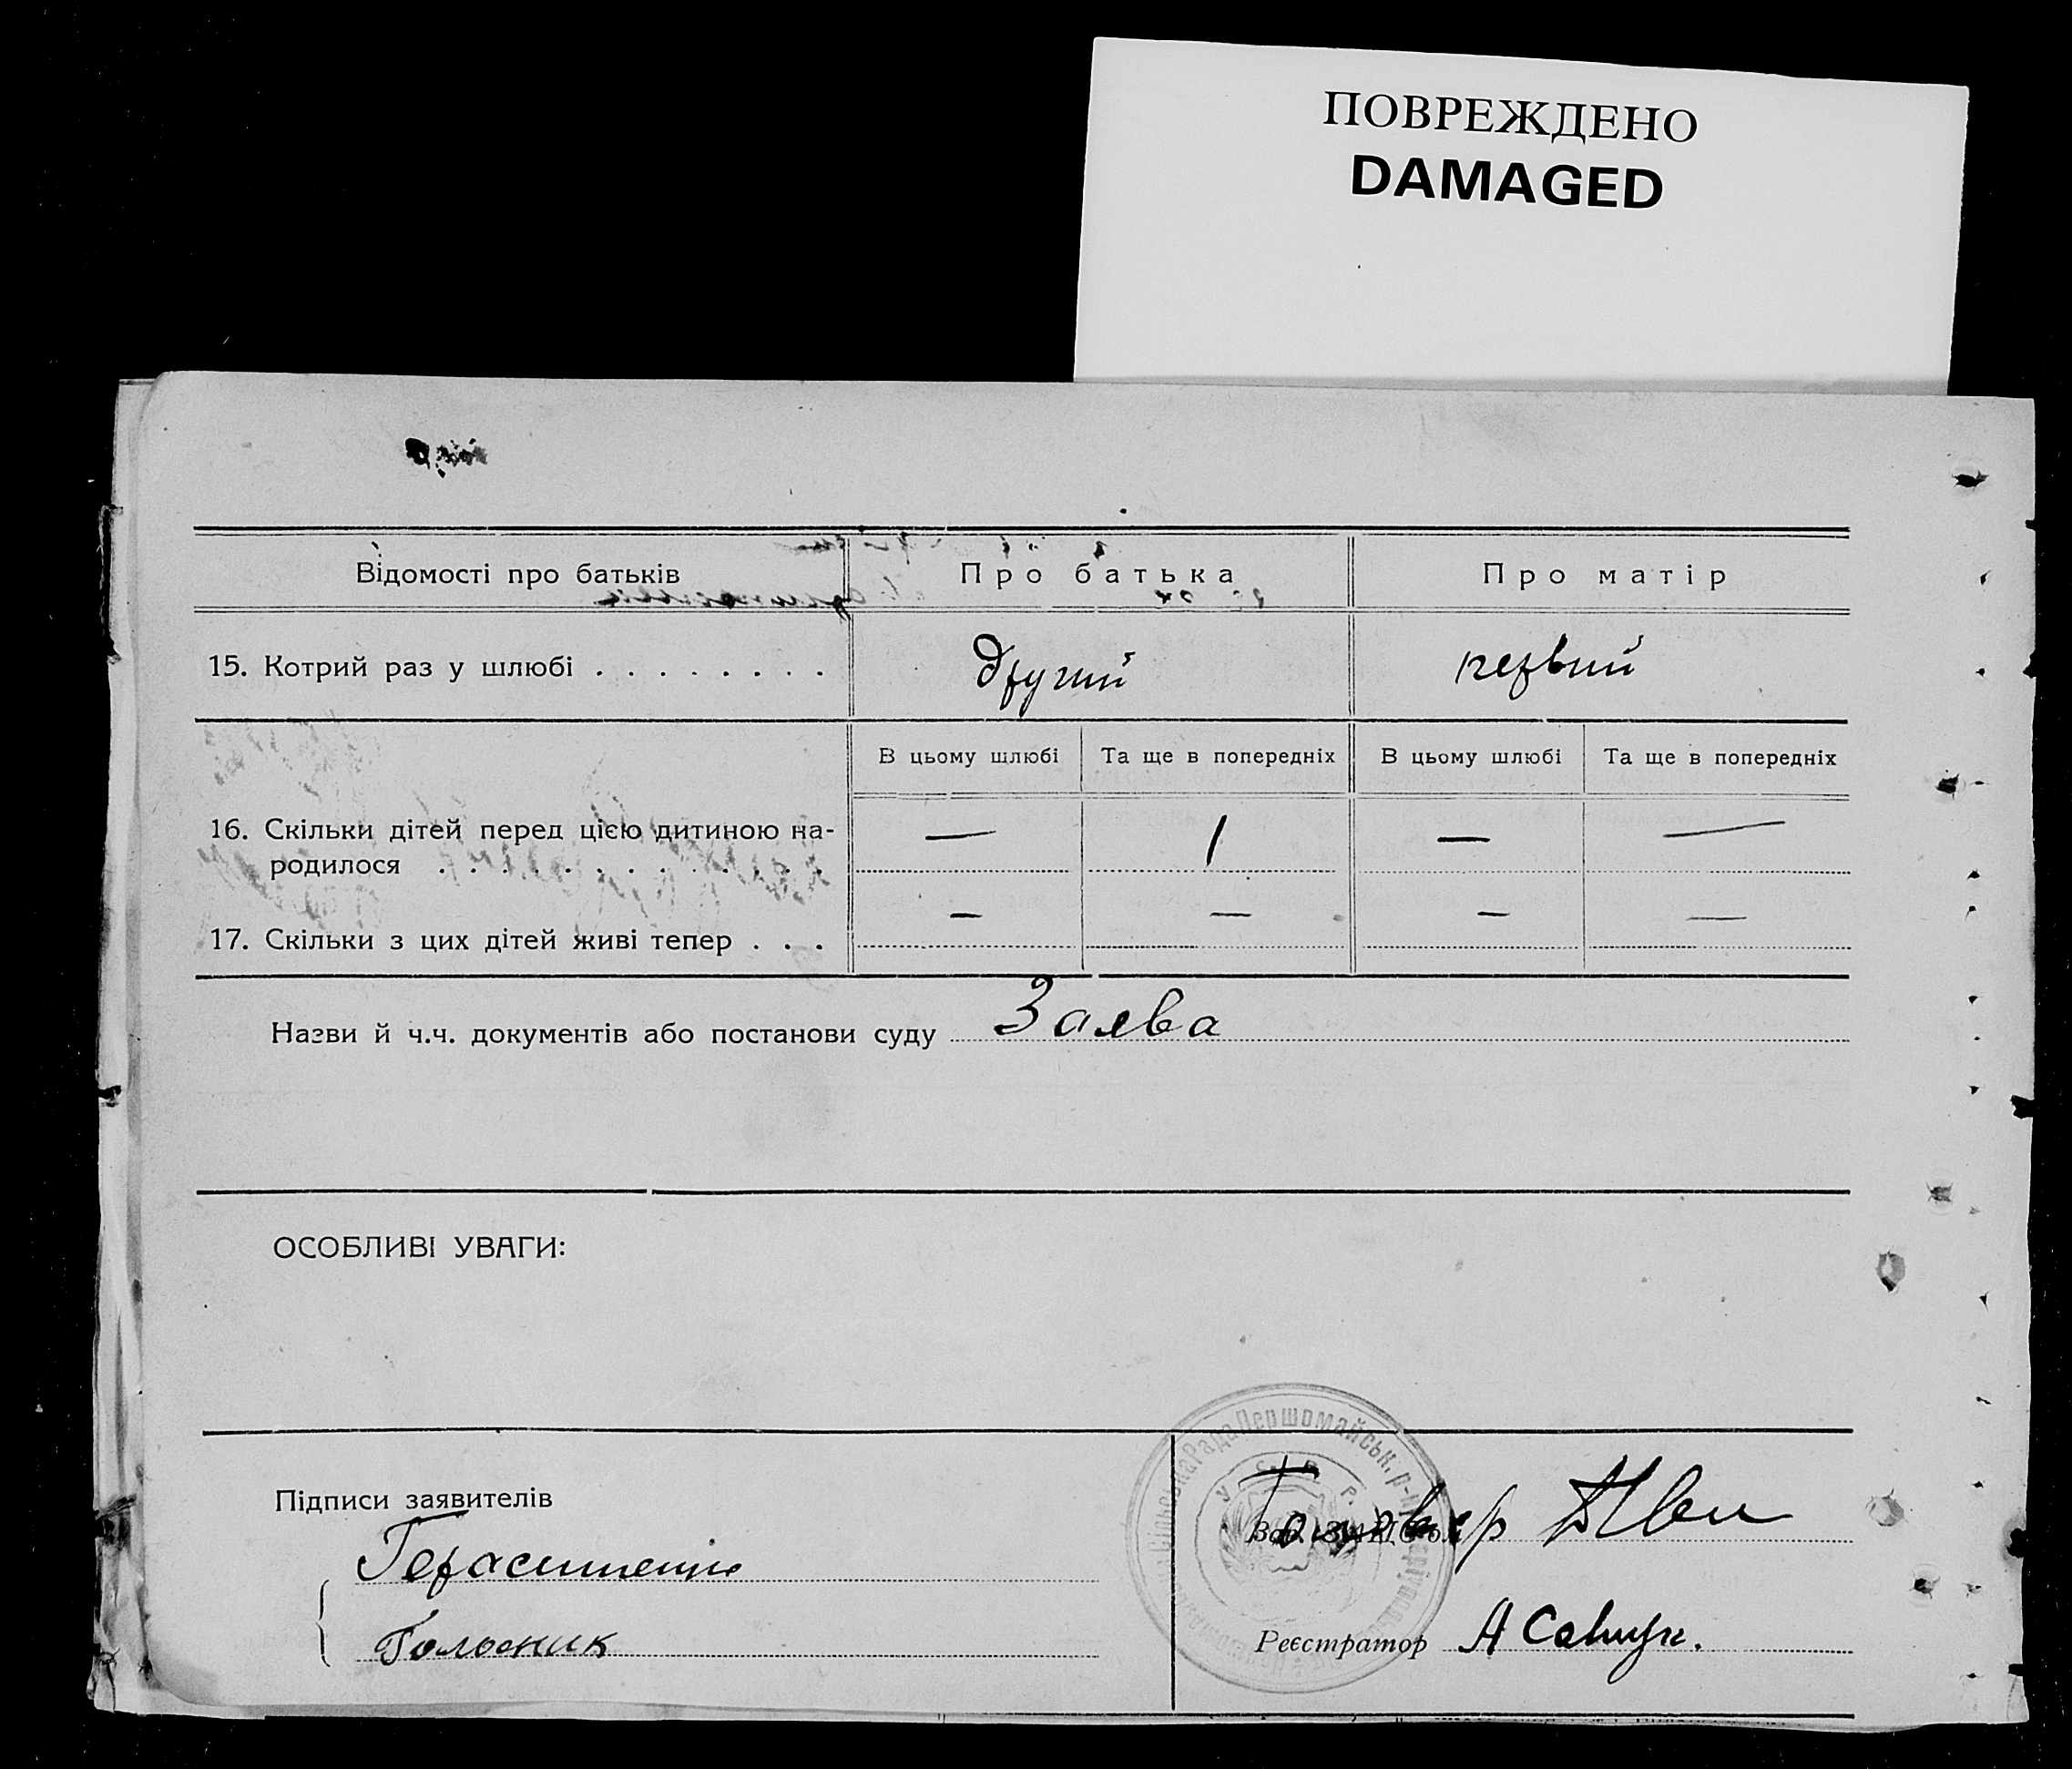 ПОВРЕЖДЕНО
DAMAGED
Відомості про батьків
Про батька
Про матір
15. Котрий раз у шлюбі . . . . . . . .
другий
первий
В цьому шлюбі
Та ще в попередніх
В цьому шлюбі
Та ще в попередніх
16. Скільки дітей перед цією дитиною на-
родилося . . . . . . . . . . . . .
—
1
—
—
17. Скільки з цих дітей живі тепер . . .
—
—
—
—
Назви й ч.ч. документів або постанови суду
Заява
ОСОБЛИВІ УВАГИ:
Підписи заявителів
Герасименко
Рада Першомайськ. р-ну
У. С. Р. Р.
Зав. ЗАГС'ом
Реєстратор